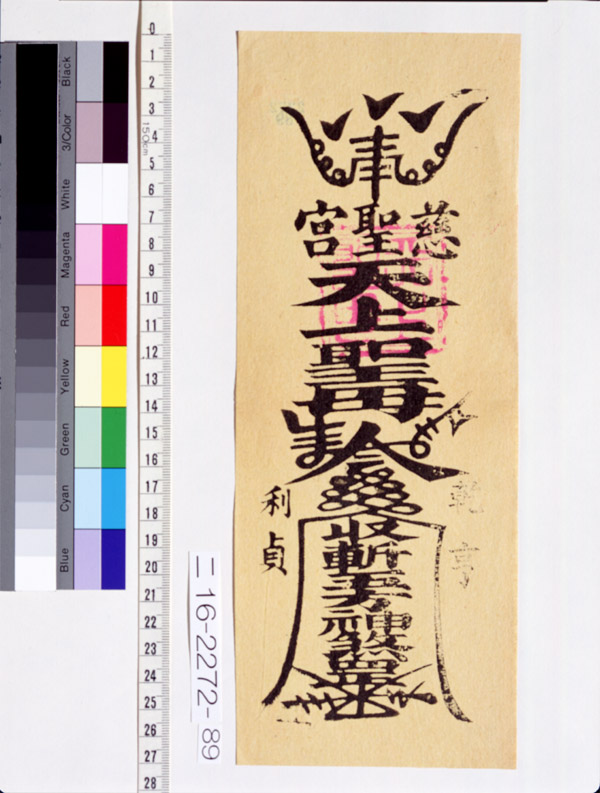 Black
3/Color
White
Magenta
Red
Yellow
Green
Cyan
Blue
0
1
2
3
4
150cm
5
6
7
8
9
10
11
12
13
14
15
16
17
18
19
20
21
22
23
24
25
26
27
28
二16-2272-89
奉
慈聖宮
天上聖母
乾
亨
利
貞
收斬